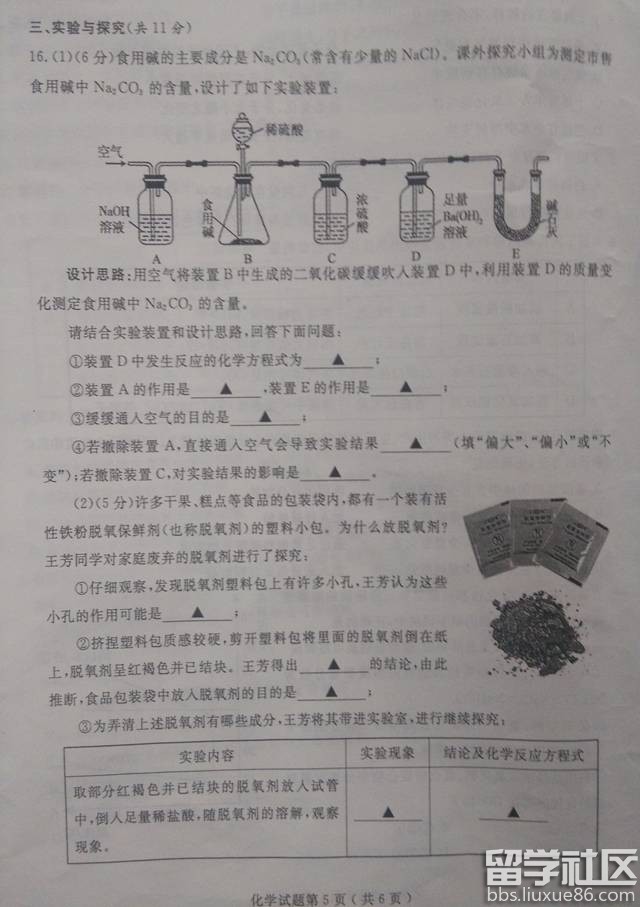 三、实验与探究(共11分)
16.(1)(6分)食用碱的主要成分是Na₂CO₃(常含有少量的NaCl)。课外探究小组为测定市售
食用碱中Na₂CO₃的含量,设计了如下实验装置:
稀硫酸
空气
NaOH
溶液
食用碱
浓硫酸
足量
Ba(OH)₂
溶液
碱石灰
A B C D E
设计思路:用空气将装置B中生成的二氧化碳缓缓吹入装置D中,利用装置D的质量变
化测定食用碱中Na₂CO₃的含量。
请结合实验装置和设计思路,回答下面问题:
①装置D中发生反应的化学方程式为▲;
②装置A的作用是▲,装置E的作用是▲;
③缓缓通入空气的目的是▲;
④若撤除装置A,直接通入空气会导致实验结果▲(填“偏大”、“偏小”或“不
变”);若撤除装置C,对实验结果的影响是▲。
(2)(5分)许多干果、糕点等食品的包装袋内,都有一个装有活
性铁粉脱氧保鲜剂(也称脱氧剂)的塑料小包。为什么放脱氧剂?
王芳同学对家庭废弃的脱氧剂进行了探究:
①仔细观察,发现脱氧剂塑料包上有许多小孔,王芳认为这些
小孔的作用可能是▲;
②挤捏塑料包质感较硬,剪开塑料包将里面的脱氧剂倒在纸
上,脱氧剂呈红褐色并已结块。王芳得出▲的结论,由此
推断,食品包装袋中放入脱氧剂的目的是▲;
③为弄清上述脱氧剂有哪些成分,王芳将其带进实验室,进行继续探究:
实验内容 实验现象 结论及化学反应方程式
取部分红褐色并已结块的脱氧剂放入试管
中,倒入足量稀盐酸,随脱氧剂的溶解,观察
现象。
▲ ▲
化学试题第5页(共6页)
留学社区
bbs.liuxue86.com